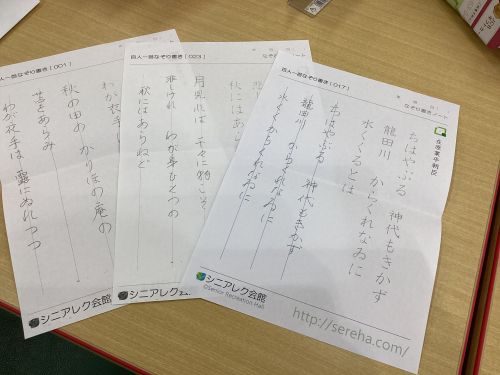 百人一首なぞり書き [ 001 ]
秋の田の かりほの庵の
苫をあらみ
わが衣手は 露にぬれつつ
シニアレク会館
百人一首なぞり書き [ 023 ]
月見れば 千々に物こそ
悲しけれ わが身ひとつの
秋にはあらねど
シニアレク会館
©Senior Recreation Hall
百人一首なぞり書き [ 017 ]
なぞり書きノート
在原業平朝臣
ちはやぶる 神代もきかず
龍田川 からくれなゐに
水くくるとは
ちはやぶる 神代もきかず
龍田川 からくれなゐに
水くくる
シニアレク会館
©Senior Recreation Hall
http://sereha.com/